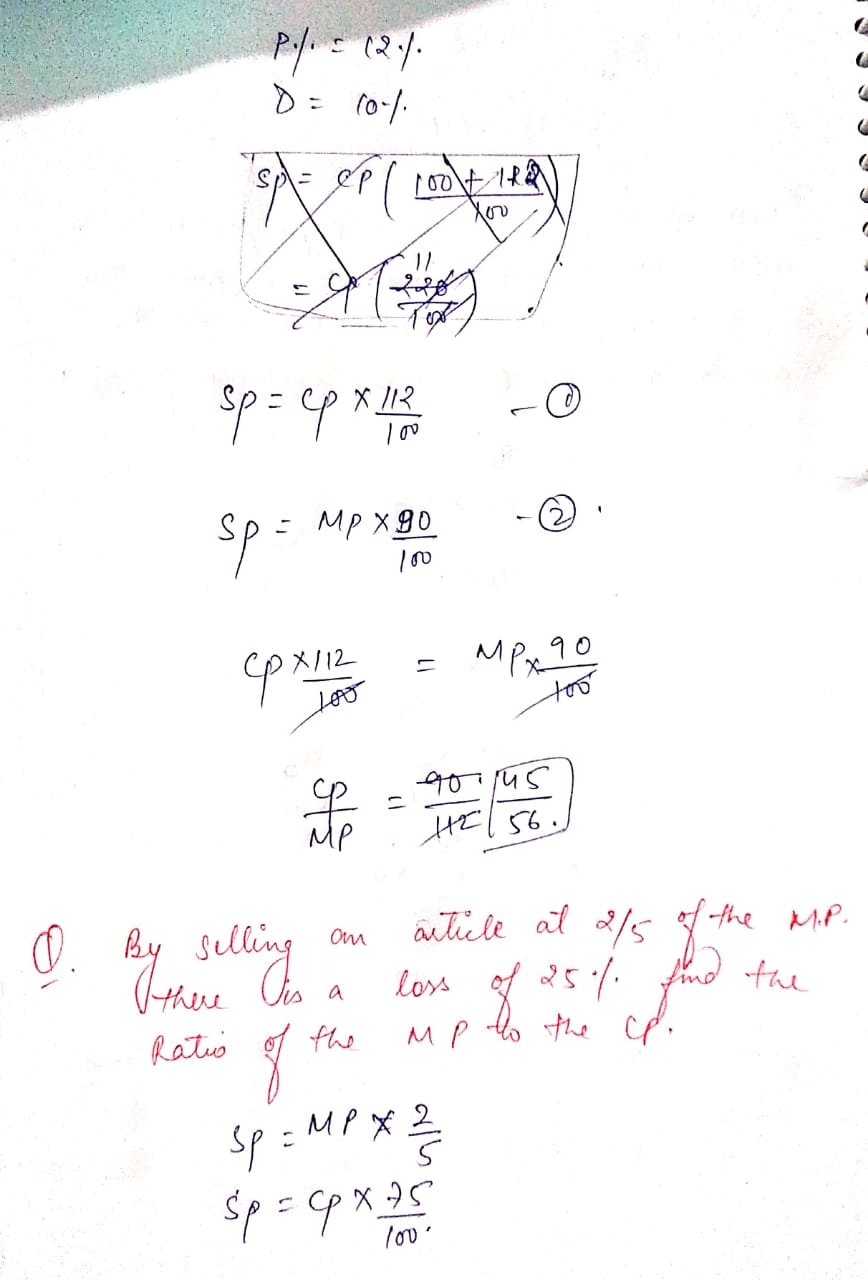 P.% = 12%.
D = 10%.
SP = CP ( 100 + 12 / 100 )
= CP ( 11 220 / 100 )
SP = CP × 112/100 - ①
SP = MP × 90/100 - ②.
CP × 112/100 = MP × 90/100
CP/MP = 90/112 45/56.
Q. By selling an article at 2/5 of the M.P.
there is a loss of 25%. find the
Ratio of the MP to the CP.
SP = MP × 2/5
SP = CP × 75/100.